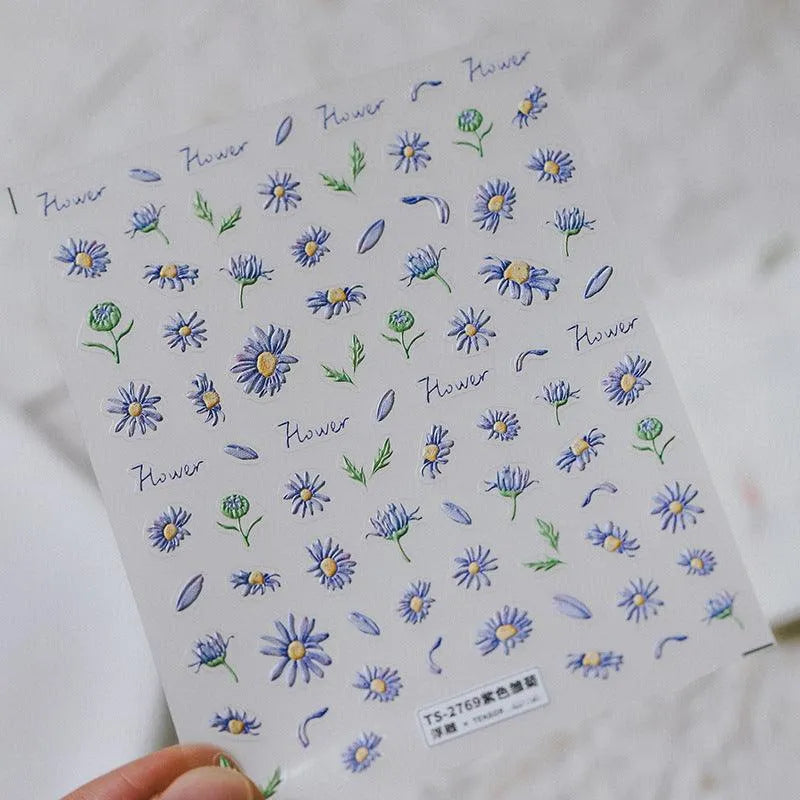 Flower
Flower
Flower
Flower
Flower
Flower
Flower
Flower
TS-2769紫色雏菊
浮雕 × TENSOR